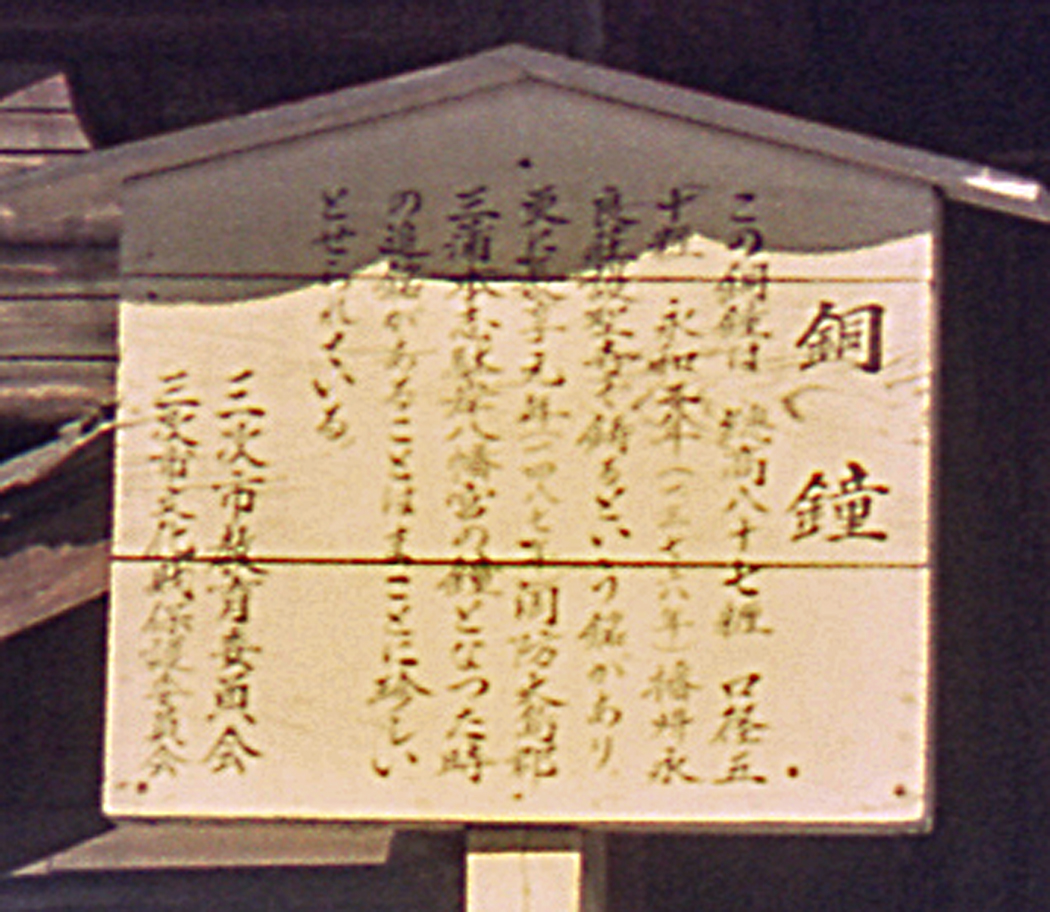 銅鐘
この銅鐘は 総高八十七糎 口径五
十糎 永和二年(一三七六年)播州永
良庄 聖寺を鋳るという銘があり
更に 元年(一四八七年)周防大島郡
三蒲本 八幡宮の鐘となつた時
の追銘があることはまことに珍しい
とせられている
三次市教育委員会
三次市文化財保護委員会